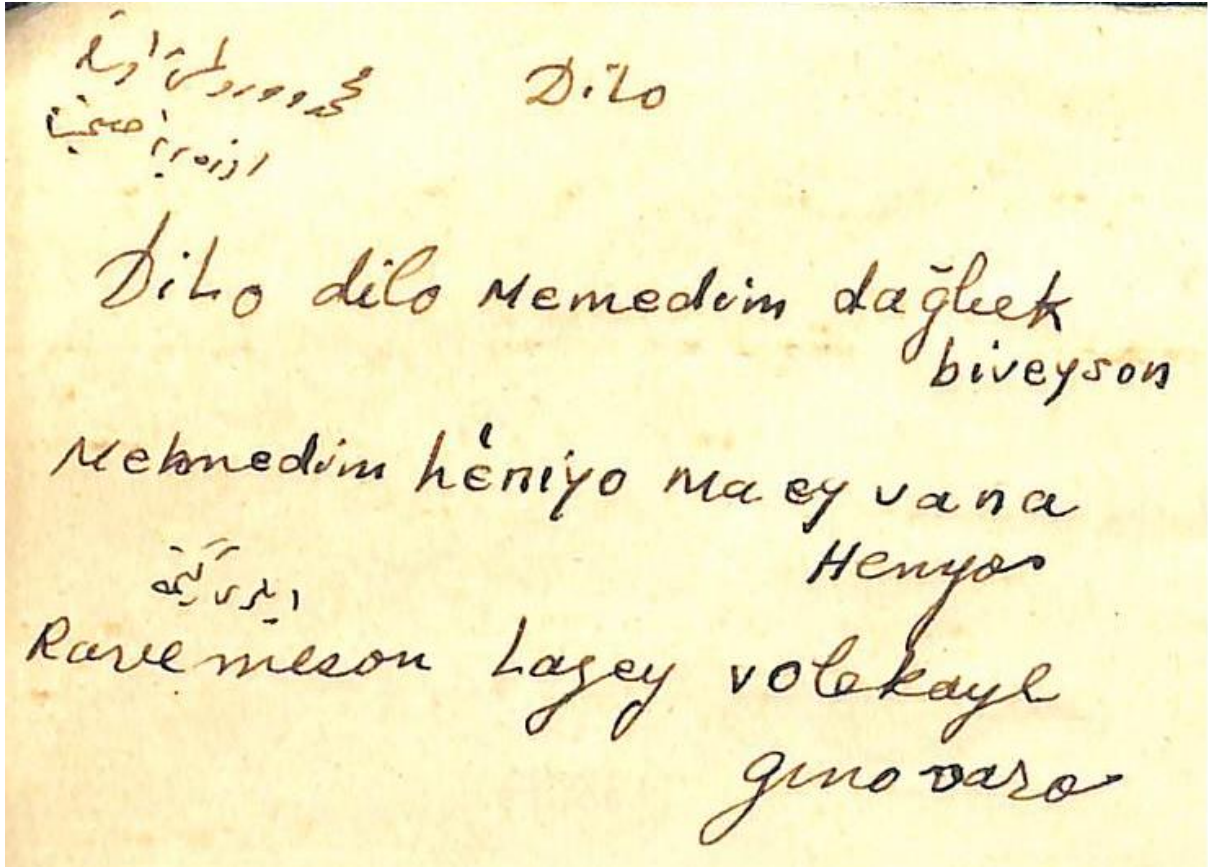 Dilo
Diho dilo Memedim dağlıek
biveyson
Mehmedim hêniyo Ma ey vana
Henyo
Rarve meson Lazey volekayl
gino varo